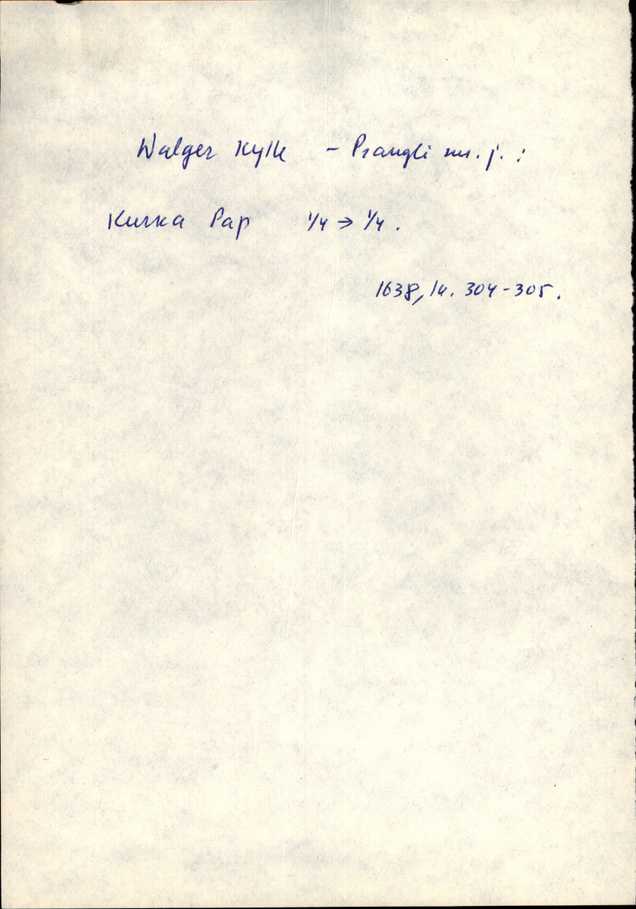 Walger Kylk - Prangli m. j. :
Kurka Pap 1/4 → 1/4 .
1638, lk. 304-305.